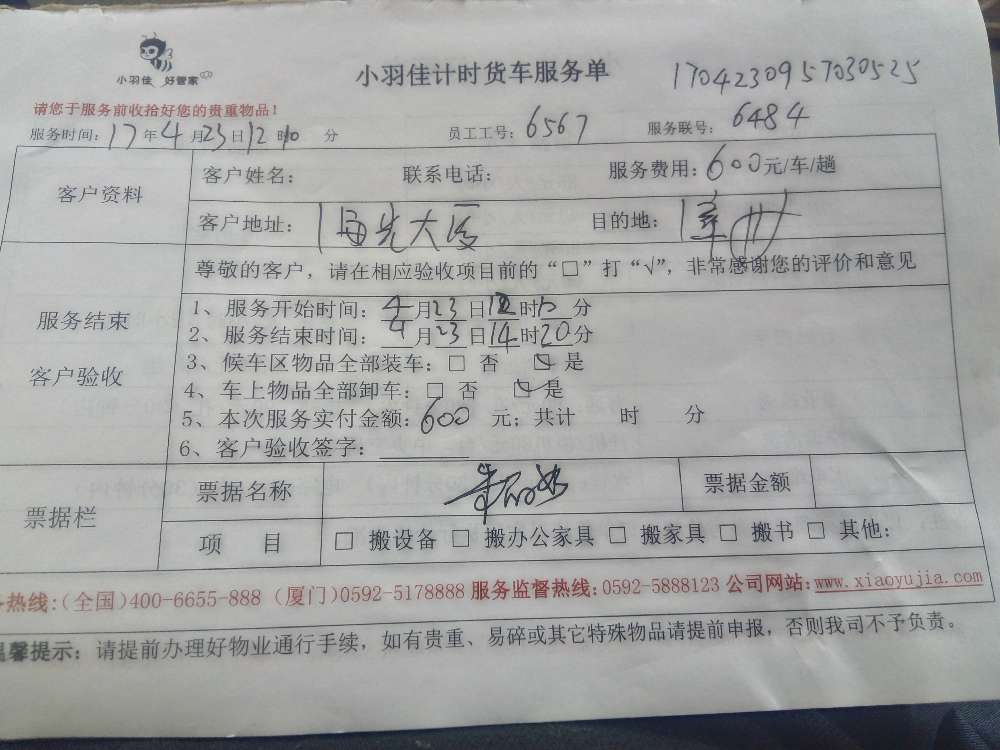 小羽佳 好管家
小羽佳计时货车服务单 1704230957030525
请您于服务前收拾好您的贵重物品!
服务时间: 17年4月23日12时10分 员工工号: 6567 服务联号: 6484
客户资料
客户姓名: 联系电话: 服务费用: 600元/车/趟
客户地址: 海光大厦 目的地: 漳州
服务结束
客户验收
尊敬的客户，请在相应验收项目前的“□”打“√”，非常感谢您的评价和意见
1、服务开始时间: 4月23日12时 分
2、服务结束时间: 4月23日14时20分
3、候车区物品全部装车: □ 否 ☑ 是
4、车上物品全部卸车: □ 否 ☑ 是
5、本次服务实付金额: 600 元; 共计 时 分
6、客户验收签字:
票据栏
票据名称 票据金额
项 目 □ 搬设备 □ 搬办公家具 □ 搬家具 □ 搬书 □ 其他:
热线:(全国)400-6655-888 (厦门)0592-5178888 服务监督热线:0592-5888123 公司网站:www.xiaoyujia.com
温馨提示: 请提前办理好物业通行手续，如有贵重、易碎或其它特殊物品请提前申报，否则我司不予负责。